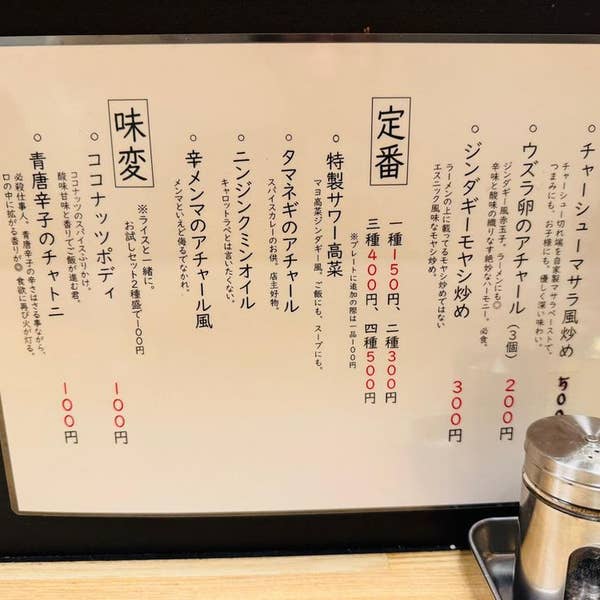 ○ チャーシューマサラ風炒め 500
チャーシュー切れ端を自家製マサラペーストで。
つまみにも、お子様にも。優しく深い味わい。
○ ウズラ卵のアチャール(3個) 200円
ジンダギー風赤玉子。ラーメンにも◎
辛味と酸味の織りなす絶妙なハーモニー。必食。
○ ジンダギーモヤシ炒め 300円
ラーメンの上に載ってるモヤシ炒めではない
エスニック風味なモヤシ炒め。
定番
一種150円、二種300円
三種400円、四種500円
※プレートに追加の際は一品100円
○ 特製サワー高菜
マヨ高菜ジンダギー風。ご飯にも、スープにも。
○ タマネギのアチャール
スパイスカレーのお供。店主好物。
○ ニンジンクミンオイル
キャロットラペとは言いたくない。
○ 辛メンマのアチャール風
メンマといえど侮るでなかれ。
味変
※ライスと一緒に。
お試しセット2種盛で100円
○ ココナッツポディ 100円
ココナッツのスパイスふりかけ。
酸味甘味と香りでご飯が進む君。
○ 青唐辛子のチャトニ 100円
必殺仕事人、青唐辛子の辛さはさる事ながら、
口の中に拡がる香りが◎ 食欲に再び火が灯る。